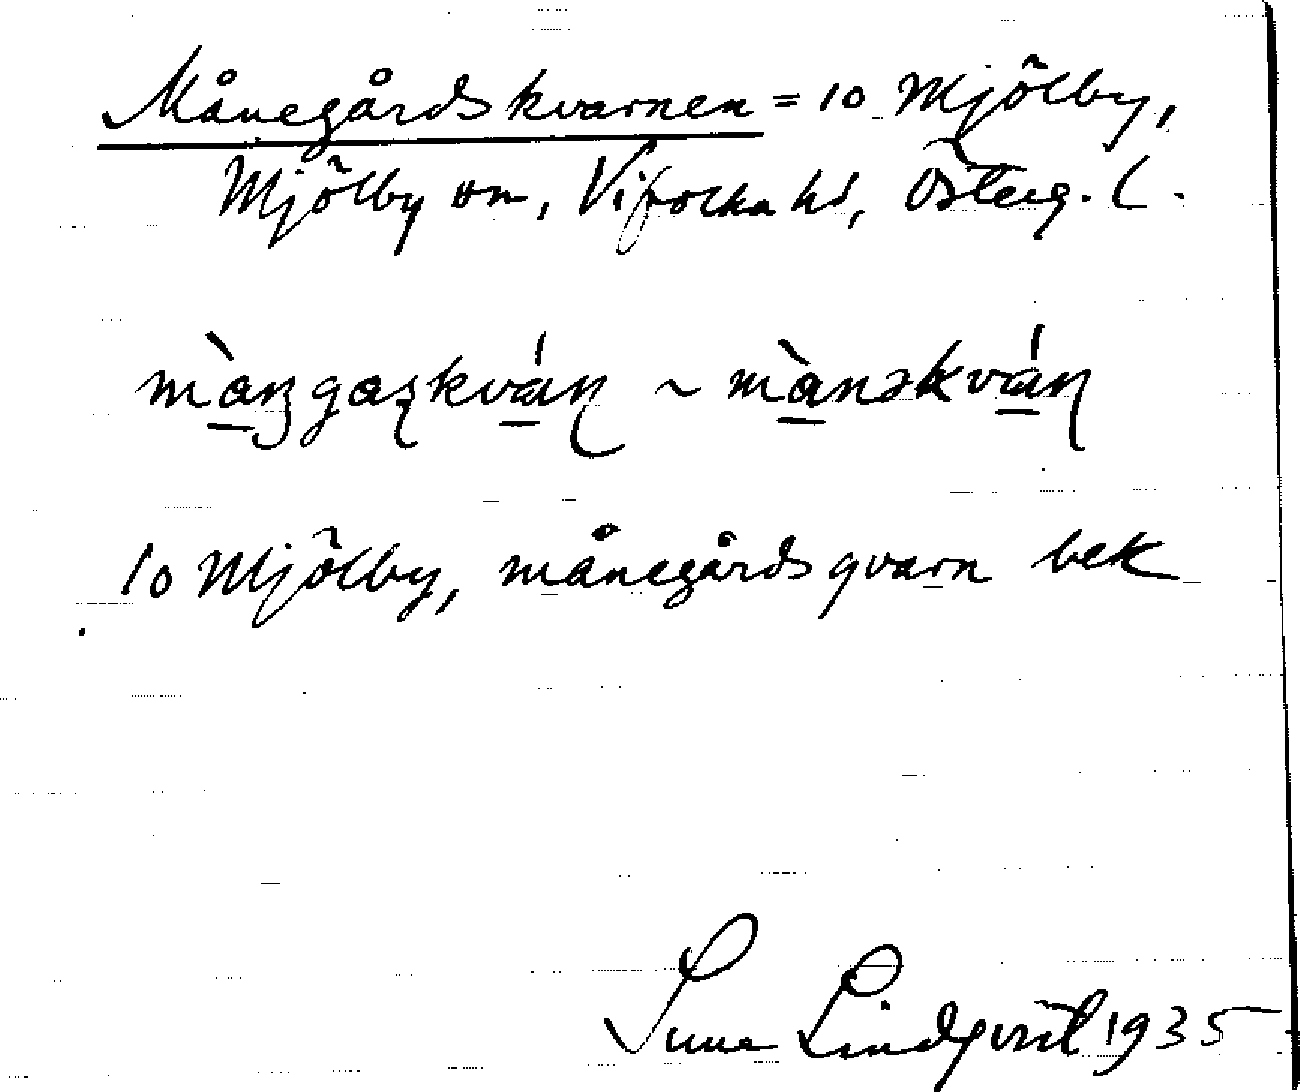 Månegårdskvarnen = 10 Mjölby,
Mjölby sn, Vifolka hd, Österg. l.
~
10 Mjölby, månegårds qvarn bek
Sune Lindqvist 1935